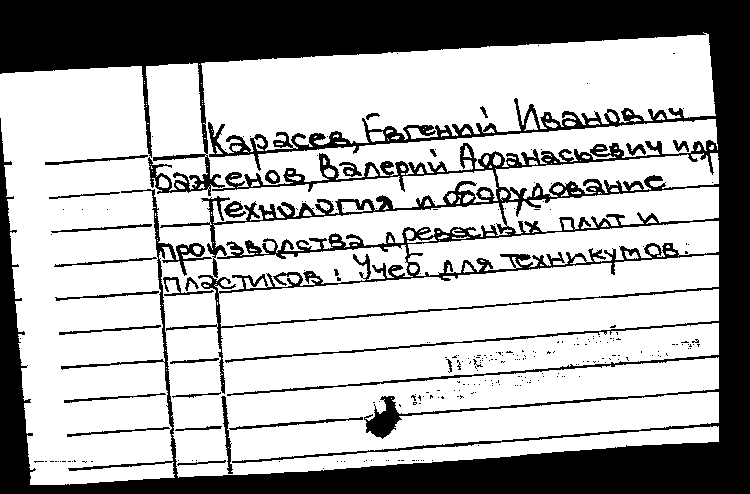 Карасев, Евгений Иванович.
Баженов, Валерий Афанасьевич и др
Технология и оборудование
производства древесных плит и
пластиков: Учеб. для техникумов.